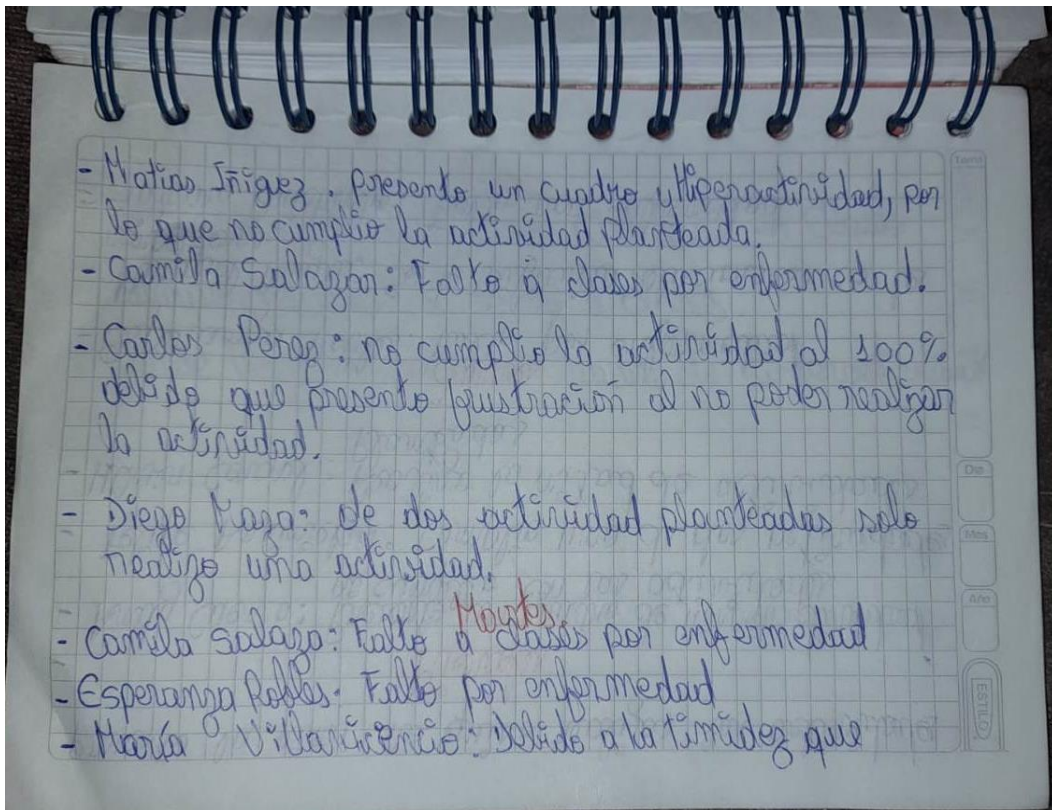 - Matias Iñiguez. presento un cuadro y Hiperactividad, por
lo que no cumplio la actividad planteada.
- Camila Salazar: Falto a clases por enfermedad.
- Carlos Perez: no cumplio la actividad al 100%
debido que presento frustración al no poder realizar
la actividad.
- Diego Maza: de dos actividad planteadas solo
realizo una actividad.
Martes
- Camila Salaza: Falto a clases por enfermedad
- Esperanza Robles: Falto por enfermedad
- María Villavicencio: Debido a la timidez que
Tema
Día
Mes
Año
ESTILO